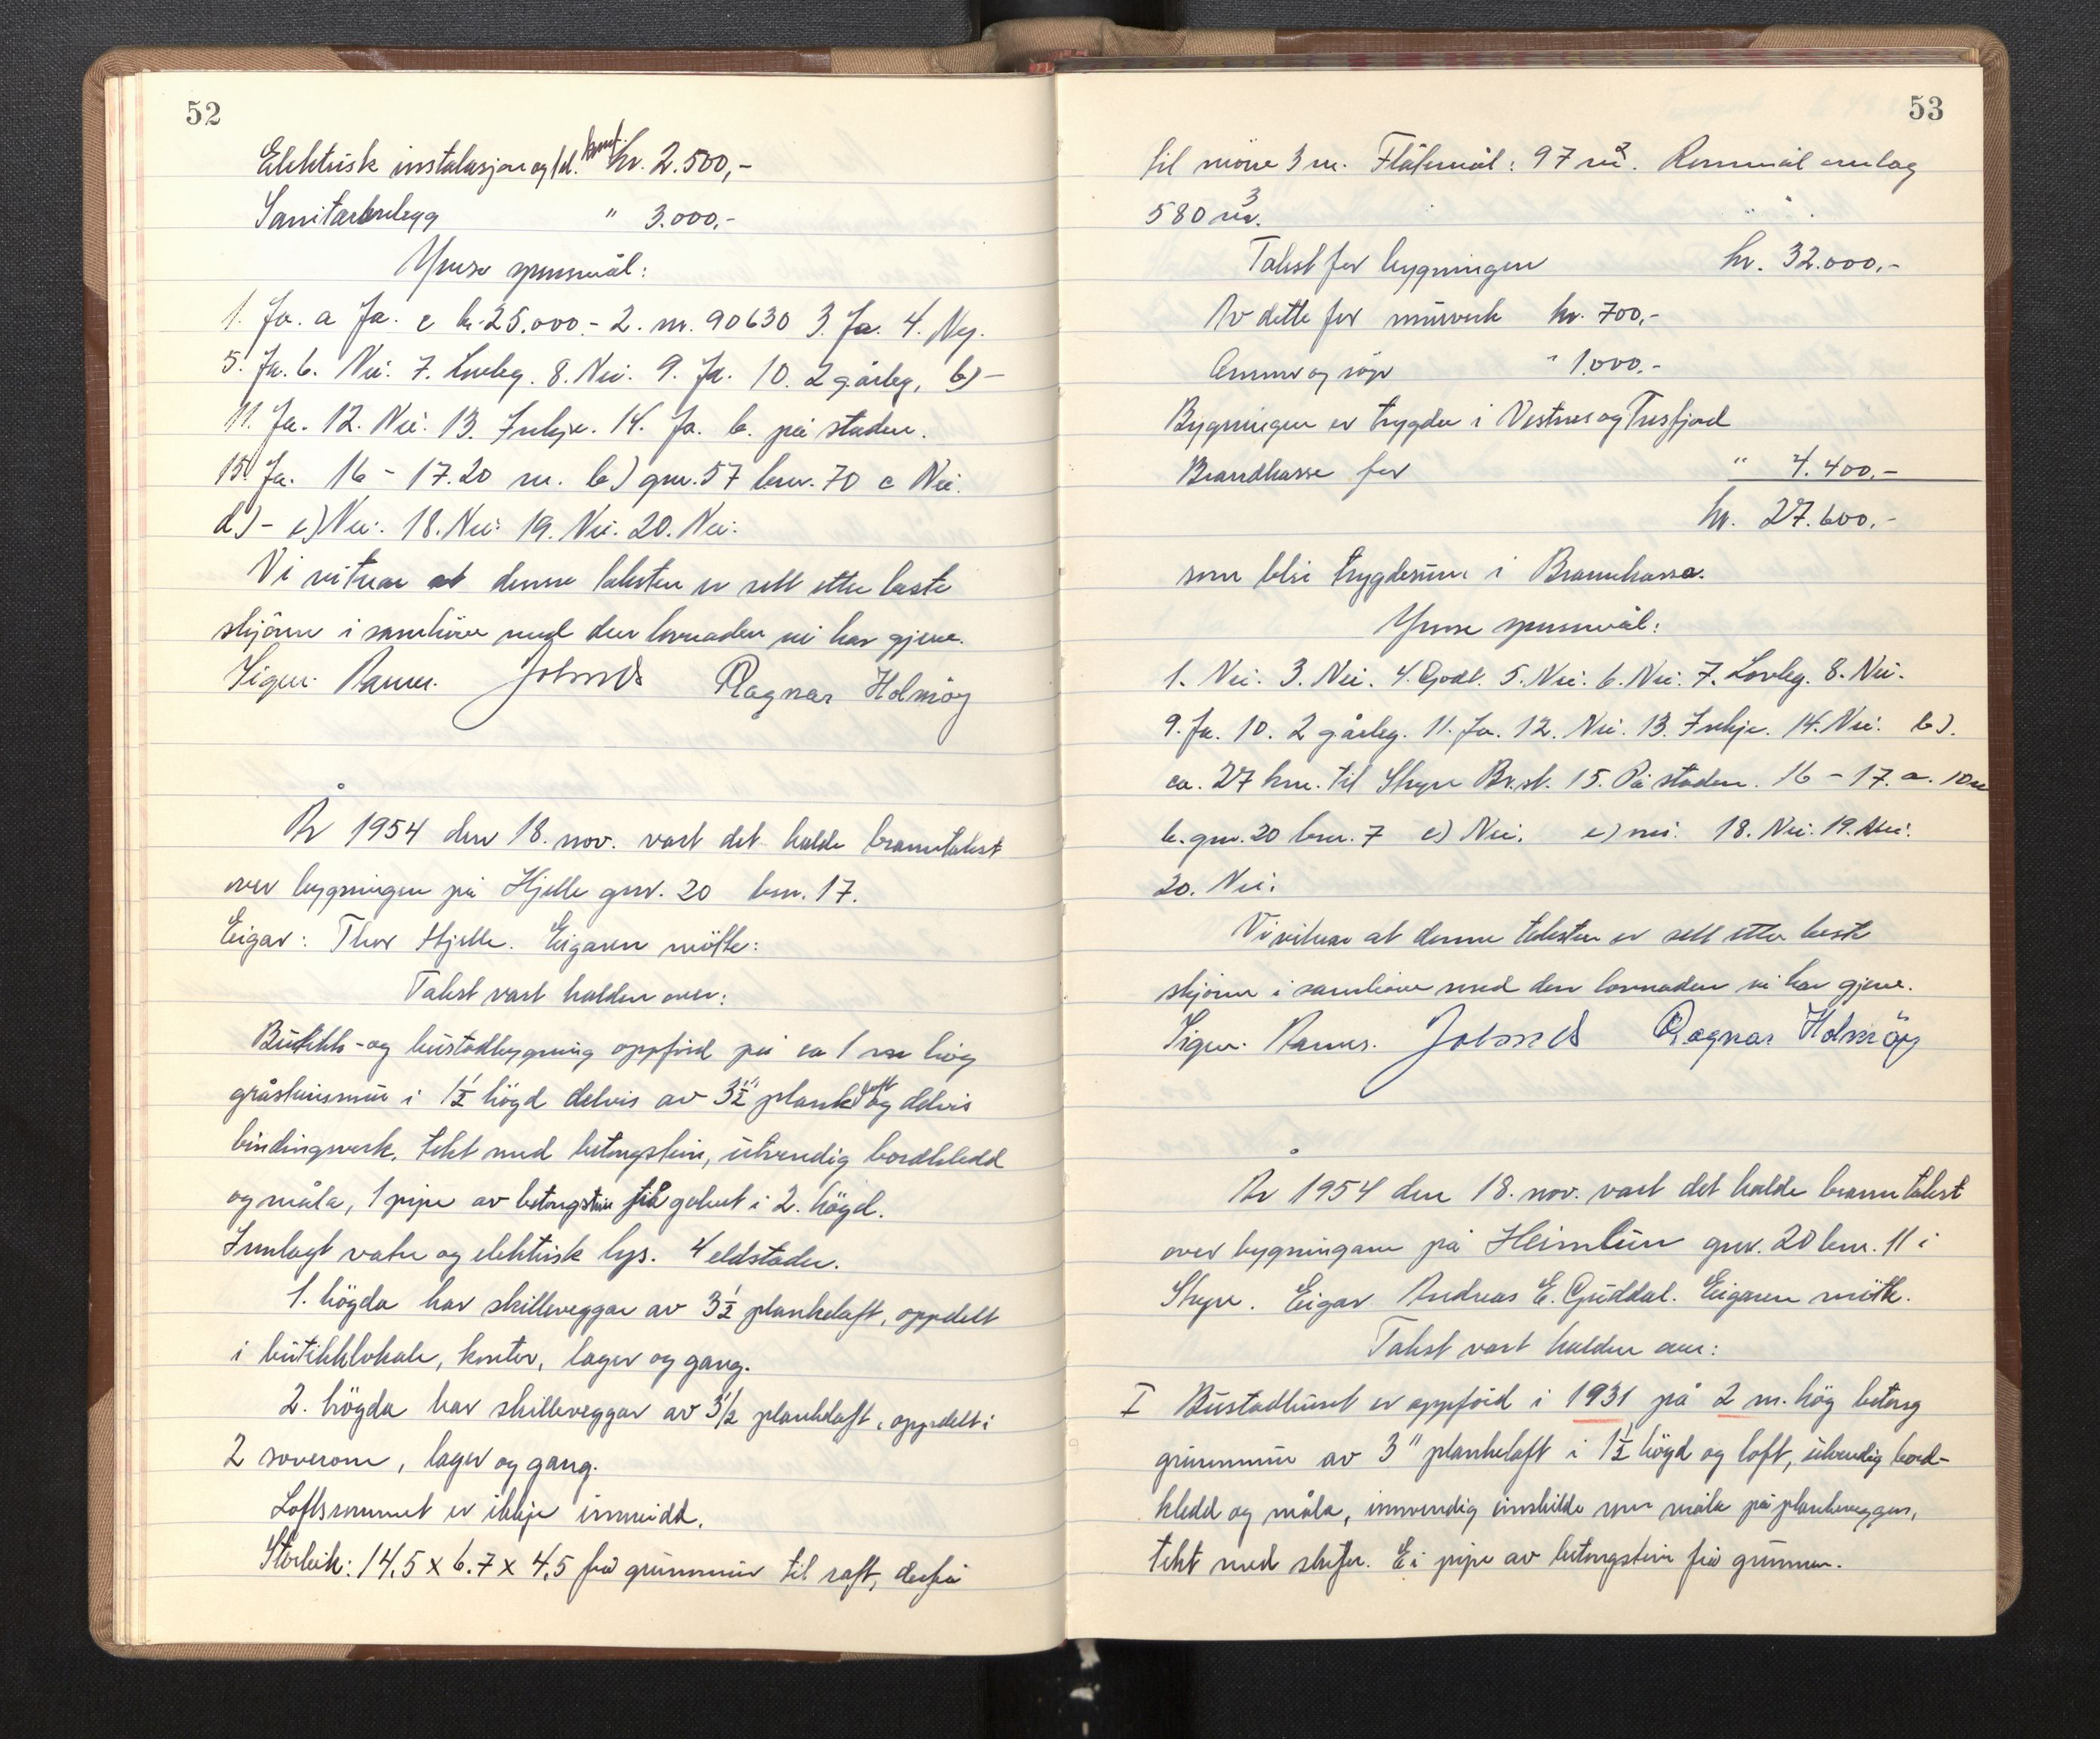 52
Elektrisk instalasjon og kr. 2.500,-
Sanitæranlegg " 3.000,-
Ymse spursmål:
1. Ja. a Ja. c kr. 25.000.- 2. nr. 90630 3. Ja. 4. Ny.
5. Ja. 6. Nei. 7. Lovleg. 8. Nei. 9. Ja. 10. 2 gårleg, b) -
11. Ja. 12. Nei. 13. Inkje. 14. Ja. b. på staden.
15. Ja. 16 - 17. 20 m. b) gnr. 57 bnr. 70 c Nei.
d) - e) Nei. 18. Nei. 19. Nei. 20. Nei.
Vi vitnar at denne taksten er sett etter beste
skjönn i samhöve med den lovnaden vi har gjeve.
Sigur. Ramm. Ragnar Holmöy
År 1954 den 18. nov. vart det halde branntakst
over bygningen på Hjelle gnr. 20 bnr. 17.
Eigar: Thor Hjelle. Eigaren mötte:
Takst vart halden over:
Butikk- og bustadbygning oppförd på ca 1 m hög
gråsteinsmur i 1½ högd delvis av 3½" plankelaft og delvis
bindingverk. tekt med betongstein, utvendig bordkledd
og måla, 1 pipe av betongstein frå golvet i 2. högd.
Innlagt vatn og elektrisk lys. 4 eldstader.
1. högda har skilleveggar av 3½ plankelaft, oppdelt
i butikklokale, kontor, lager og gang.
2. högda har skilleveggar av 3½" plankelaft, oppdelt i
2 soverom, lager og gang.
Loftsrommet er ikkje innreidd.
Storleik: 14,5 x 6.7 x 4,5 frå grunnmur til raft, derfrå
53
til möne 3 m. Flatemål: 97 m². Rommål omlag
580 m³.
Takst for bygningen kr. 32.000,-
Av dette for murverk kr. 700,-
Omnar og rör " 1.000,-
Bygningen er trygda i Vestnes og Tresfjord
Brandkasse for " 4.400,-
kr. 27.600,-
som blir trygdesum i Brannkassa.
Ymse spursmål:
1. Nei. 3. Nei. 4. Godt. 5. Nei. 6. Nei. 7. Lovleg. 8. Nei.
9. Ja. 10. 2 gårleg. 11. Ja. 12. Nei. 13. Inkje. 14. Nei. b).
ca. 27 km. til Stryn Br.st. 15. På staden. 16 - 17. a. 10 m
b. gnr. 20 bnr. 7 c) Nei. e) nei. 18. Nei. 19. Nei.
20. Nei.
Vi vitnar at denne taksten er sett etter beste
skjönn i samhöve med den lovnaden vi har gjeve.
Sigur. Ramm. Ragnar Holmöy
År 1954 den 18. nov. vart det halde branntakst
over bygningane på Heimtun gnr. 20 bnr. 11 i
Stryn. Eigar Andreas E. Guddal. Eigaren mötte.
Takst vart halden over:
I Bustadhuset er oppförd i 1931 på 2 m. hög betong
grunnmur av 3" plankelaft i 1½ högd og loft, utvendig bord-
kledd og måla, innvendig einskilde rom måla på plankeveggen,
tekt med skifer. Ei pipe av betongstein frå grunnen.